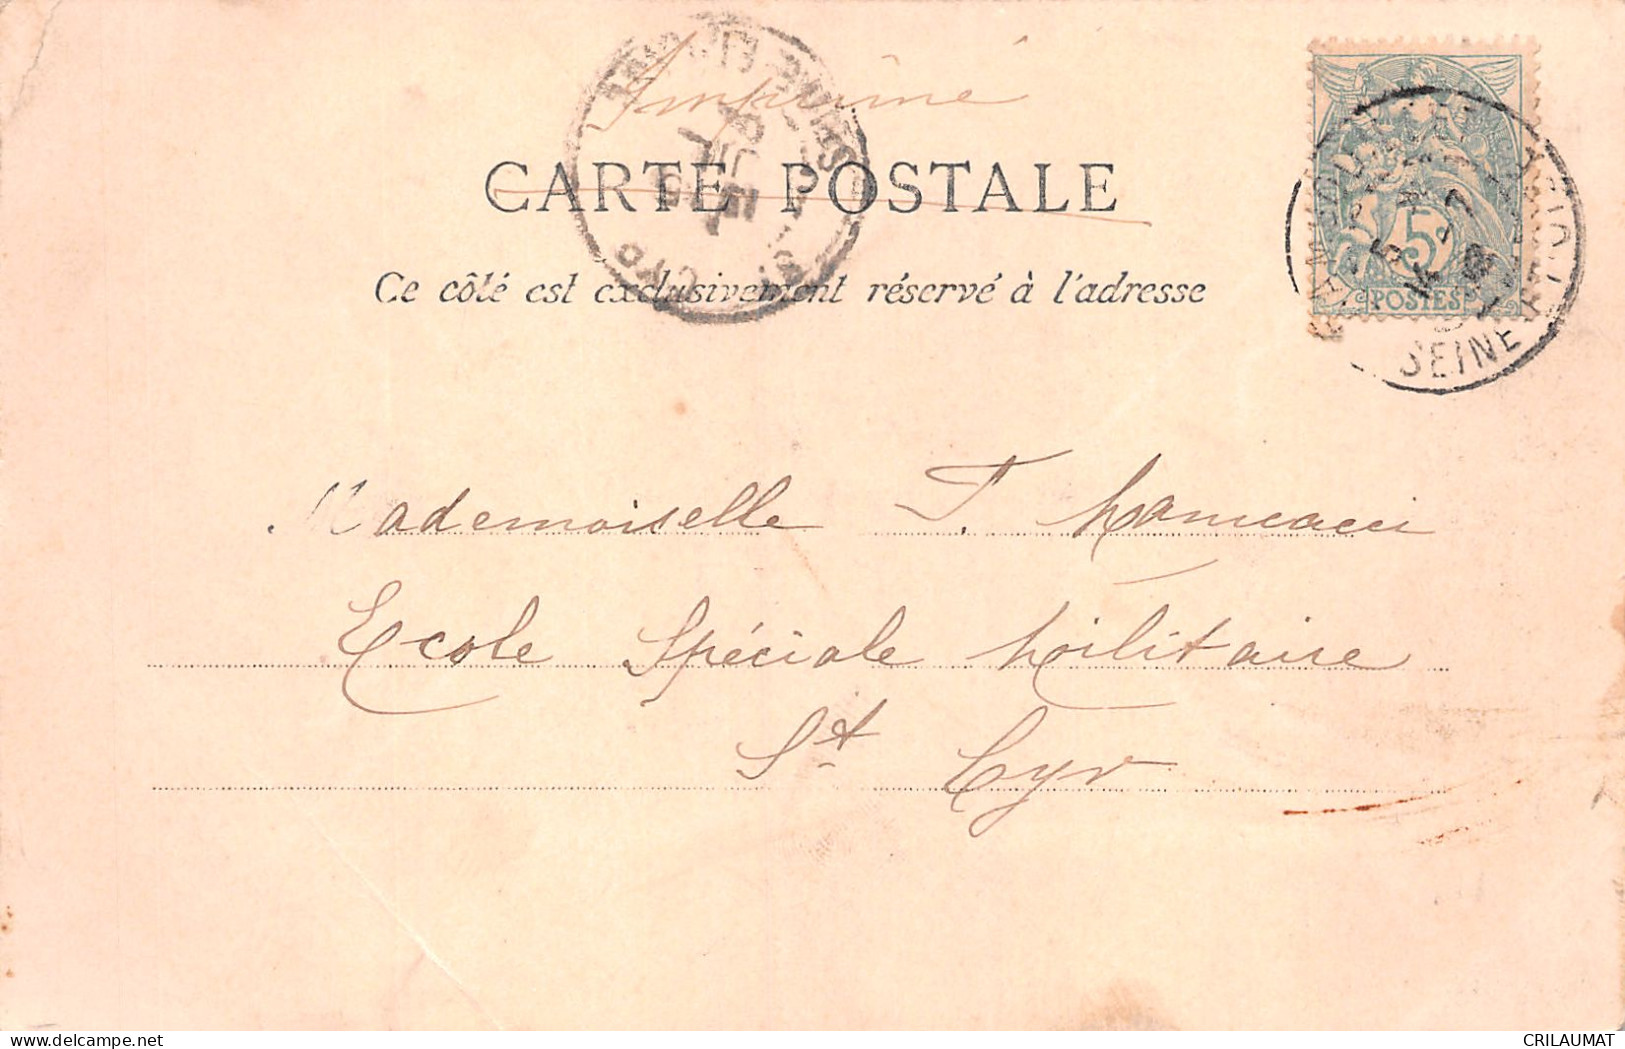 Imprimé
CARTE POSTALE
Ce côté est exclusivement réservé à l'adresse
5c
POSTES
SEINE
Mademoiselle T.
Ecole Spéciale Militaire
St Cyr
website: www.delcampe.net
CRILAUMAT